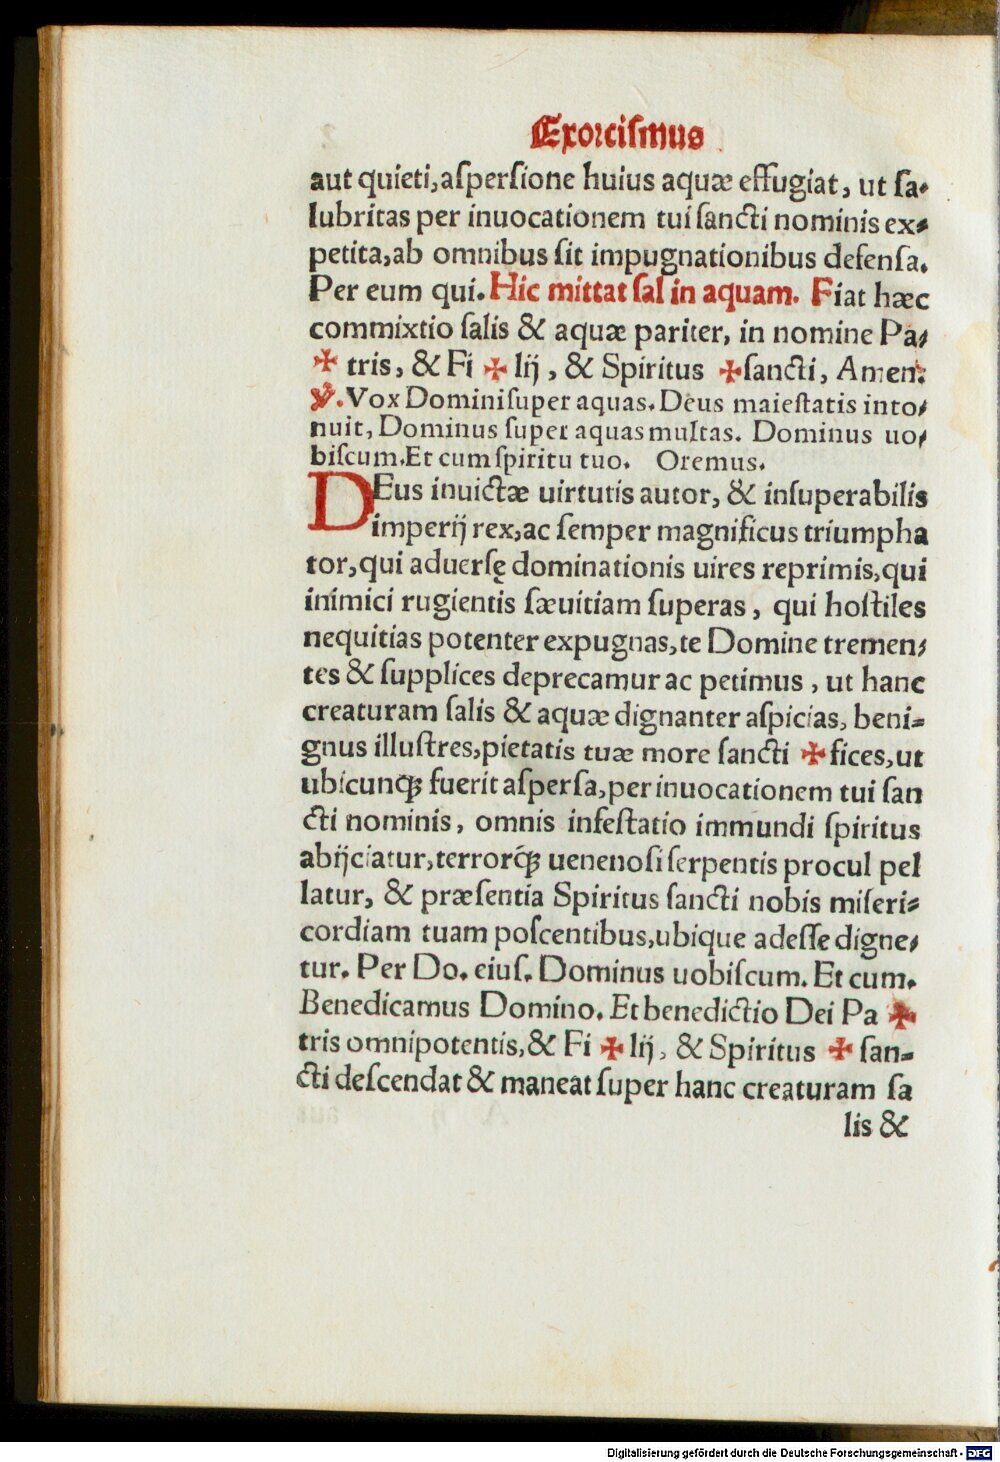 Exorciſmus
aut quieti, aſperſione huius aquæ effugiat, ut ſa-
lubritas per inuocationem tui ſancti nominis ex-
petita, ab omnibus ſit impugnationibus defenſa.
Per eum qui. Hic mittat ſal in aquam. Fiat hæc
commixtio ſalis & aquæ pariter, in nomine Pa-
✠ tris, & Fi ✠ lij, & Spiritus ✠ ſancti, Amen.
℣. Vox Domini ſuper aquas. Deus maieſtatis into-
nuit, Dominus ſuper aquas multas. Dominus uo-
biſcum. Et cum ſpiritu tuo. Oremus.
DEus inuictæ uirtutis autor, & inſuperabilis
imperij rex, ac ſemper magnificus triumpha
tor, qui aduerſę dominationis uires reprimis, qui
inimici rugientis ſæuitiam ſuperas, qui hoſtiles
nequitias potenter expugnas, te Domine tremen-
tes & ſupplices deprecamur ac petimus, ut hanc
creaturam ſalis & aquæ dignanter aſpicias, beni-
gnus illuſtres, pietatis tuæ more ſancti ✠ fices, ut
ubicunqꝫ fuerit aſperſa, per inuocationem tui ſan
cti nominis, omnis infeſtatio immundi ſpiritus
abijciatur, terrorq́ꝫ uenenoſi ſerpentis procul pel
latur, & præſentia Spiritus ſancti nobis miſeri-
cordiam tuam poſcentibus, ubique adeſſe digne-
tur. Per Do. eiuſ. Dominus uobiſcum. Et cum.
Benedicamus Domino. Et benedictio Dei Pa ✠
tris omnipotentis, & Fi ✠ lij, & Spiritus ✠ ſan-
cti deſcendat & maneat ſuper hanc creaturam ſa
lis &
Digitalisierung gefördert durch die Deutsche Forschungsgemeinschaft - DFG